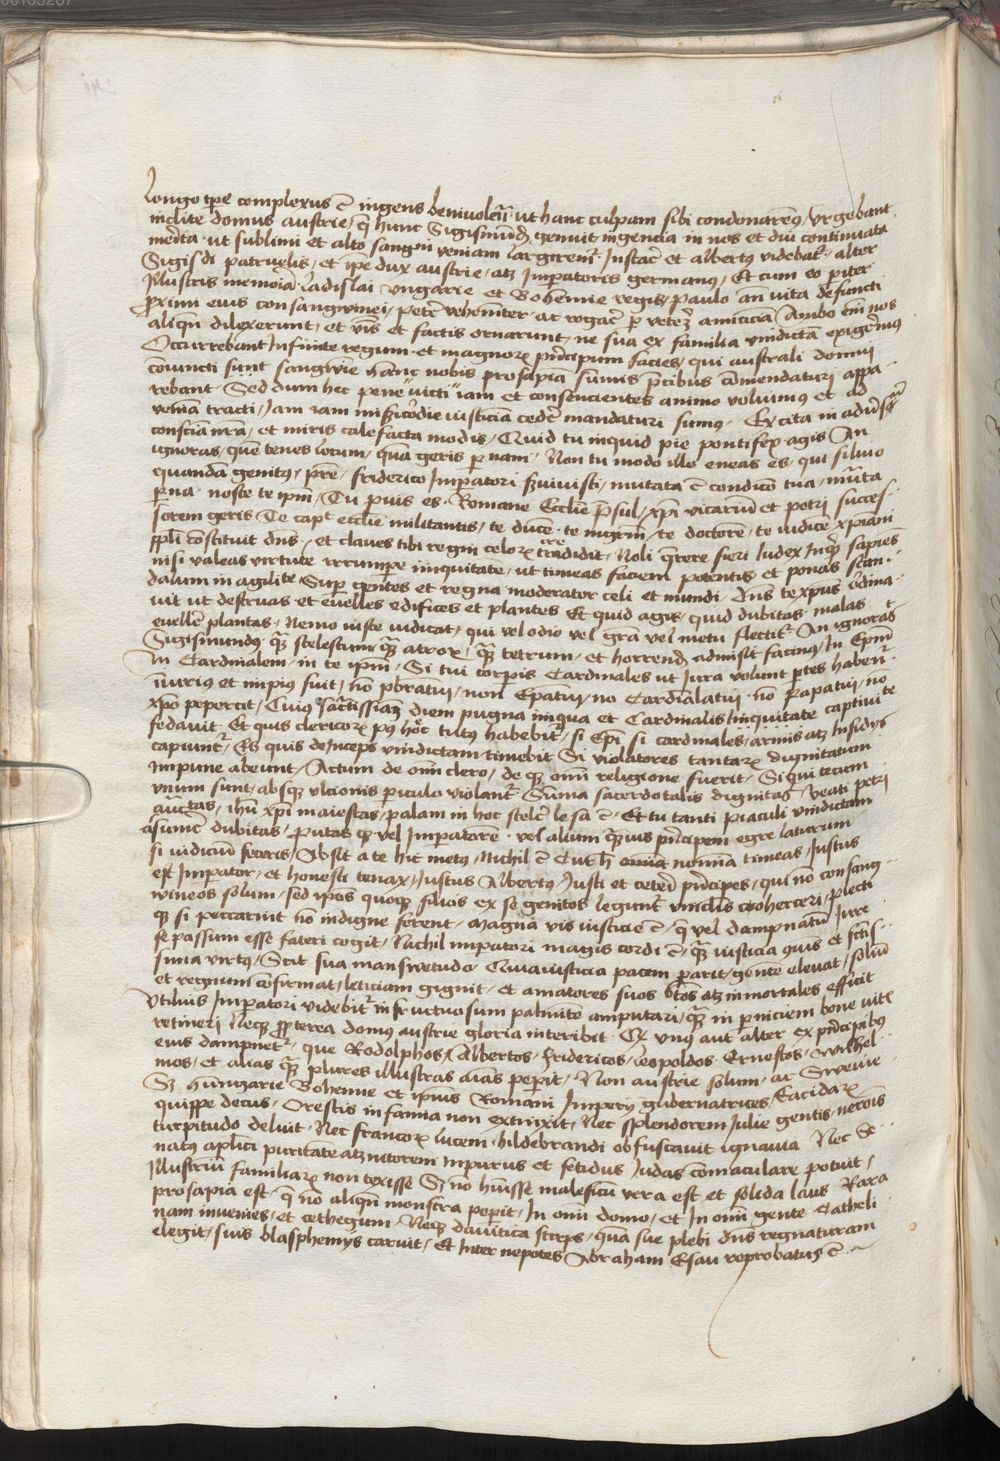 longo tpe complexus ē ingens benivolēciā ut hanc culpam sibi condonareq̄ Urgebant
inclite domus austrie / q̄ hunc Sigismūdū genuit ingencia in nos et diu continuata
merita ut sublimi et alto sangui veniam largirem̄ Instāc et albertus videbat̄ alter
Sigis̄di patruelis / et ip̄e dux austrie / atz Imp̄atoris germanus / Et cum eo p̄iter
Illustris memoīa ladislai ungarie et Bohemie regis / paulo an̄ vita defuncti
p̄ximi eius consangwinei / petē vehem̄ter ac rogār p̄ veterē amiciciā Ambo em̄ nos
aliqn̄ dilexerunt / et v̄bis et factis ornarunt / ne sua ex familia vindictā exigem̄us
Occurrebant Infinite regum et magnoꝝ p̄ncipum facies / qui australi domui
coniuncti sunt sangwīe hanc nobis prosapiā sum̄is p̄cibus cōmendaturi appa
rebant Sed dum hec pene victi iam et consencientes animo volvimus et ad
veniā tracti / Iam iam mis̄icordie iusticiā ceder̄ mandaturi sumus Excita in adūsū
consciā nr̄a / et miris calefacta modis / Quid tu inquid pie pontifex agis An
ignoras / quē tenes locum / quā geris p̄sonam Non tu modo ille eneas es / qui silvio
quandā genitus / p̄re / friderico Imp̄atori s̄vivisti / mutata ē condicō tua / mutata
p̄sona noste te ip̄m / Tu p̄vis es Romane Ecclie p̄sul / xp̄i vicariū et petri succes
sorem geris Te caput ecclie militantis / te ducē te mgr̄m / te doctorē / te iudicē xp̄iani
ppli cōstituit dn̄s / et claves tibi regni celoꝝ tradidit / Noli q̄rere fieri Iudex Inq̄t sapiēs
nisi valeas virtute irrumpe iniquitate / ut timeas faciem potentis et ponas scan
dalum in agilite Sup̄ gentes et regna moderator celi et mundi dn̄s te xp̄us ordina
vit ut destruas et evelles edifices et plantes Et quid agis / quid dubitas malas
evellē plantas / Nemo iuste iudicat / qui vel odio vel grā vel metu flectit̄ An ignoras
Sigismundus q̄ꝫ scelestum q̄ꝫ atrox / q̄ꝫ tetrum / et horrendū admisit facinus / In Ep̄m
In Cardinalem in te ip̄m / Si tui corpis Cardinales ut Iura volunt p̄tes haben̄
iniurius et impius fuit / nō p̄bratui / non Ep̄atui / no Cardīalatui no Papatui / no
xp̄o pepercit / Cuius sāctissimā diem pugna iniqua et Cardinalis iniquitate captivite
fedavit Et quis clericoꝝ p̄ hoc tutus habebit̄ / si Ep̄i si cardinales / armis atz Insidijs
capiunt̄ / Et quis deinceps vindictam timebit Si violatores tantaꝝ dignitatum
Impune abeunt / Actum de om̄i clero / de q̄ꝫ om̄i religione fuerit / Si qui tecum
unum sunt / absqꝫ ulcionis p̄iculo violant̄ Sum̄a sacerdotalis dignitas / beati petri
auctas / ihū xp̄i maiestas / palam in hoc scelē lesa ē Et tu tanti piaculi vindictam
assum̄e dubitas / putas q̄ vel Imp̄atorē vel alium q̄mvis p̄ncipem egre laturum
si iudiciū feceris / Absit a te hic metus / Nichil ē timeas / Iustus
est Imp̄ator / et honesti tenax / Iustus Albertus / Iusti et ceteri p̄ncipes / qui nō consang
wineos solum / sed ip̄os quoqꝫ filios ex se genitos legunt vinclis coherceri / plecti
q̄ꝫ si peccarint nō indigne ferent / Magna vis iusticie ē / q̄ vel dampnatū Iure
se passum esse fateri cogit / Nichil imp̄atori magis cordi ē / q̄ꝫ iusticia
sima virtus / Scit sua manswetudo Quia iusticia pacem parit / gentē elevat / soliū
et regnum confirmat / leticiam gignit / et amatores suos b̄tos atz inmortales efficit
Utilius Imp̄atori videbit̄ infructuosum palmitē amputari / q̄ꝫ in p̄niciem bone vitis
retineri Neqꝫ p̄pterea domus austrie gloria interibit Et unus aut alter ex p̄ncipibus
eius dampnet̄ / que Rodolphos / Albertos / fridericos / leopoldos Ernestos / Wilhel
mos / et alias q̄ꝫ plures illustras aīas peperit / Non austrie solum / ac Swevie
Sꝫ hungarie Bohemie et ipius Romani Imperij gubernatrices / Eacidaꝝ
quippe decus / Orestis infamia non extinxit / Nec splendorem Iulie gentis neronis
turpitudo deluit / Nec francoꝝ lucem hildebrandi obfuscavit ignavia Nec Se
natus aplici puritatē atz nitorem inpurus et fetidus Iudas cōmaculare potuit /
Illustriū familiaꝝ non texisse Sꝫ nō huisse maleficū vera est et solida laus Rara
prosapia est q̄ nō aliqn̄ monstra pep̄it / In om̄i domo / et In om̄i gente Catheli
nam invenies / et cethegum Neqꝫ davitica stirps / quā sue plebi dn̄s regnaturam
elegit / suis blasphemijs caruit / Et Inter nepotes Abraham Esau reprobatus ē